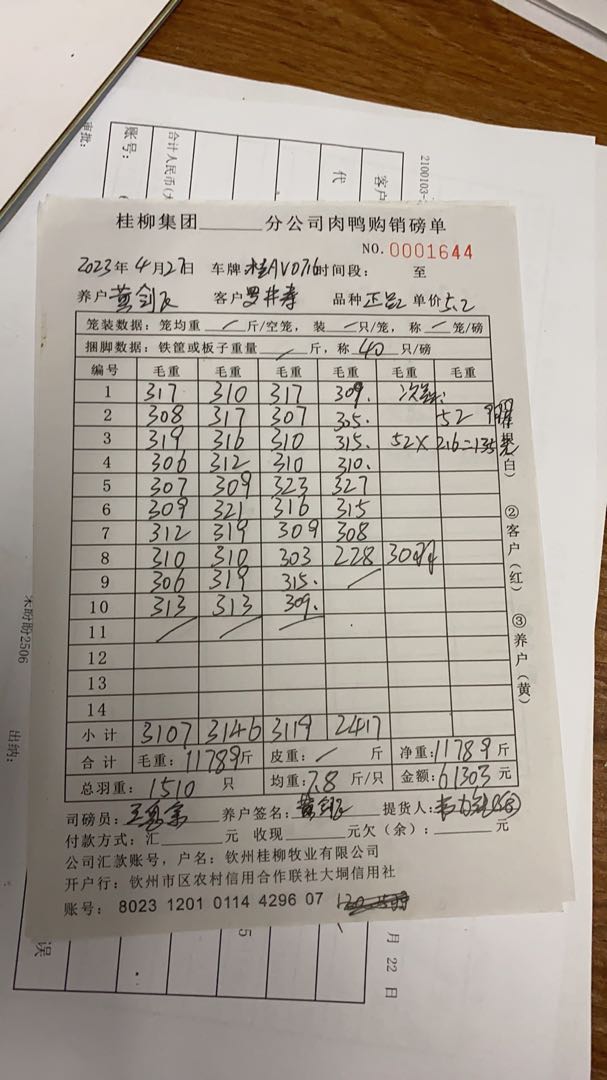 2100103-
客户
代
合计人民币(大
账号:
审批:
桂柳集团______分公司肉鸭购销磅单
NO.0001644
2023年4月27日 车牌桂AV0716时间段: 至
养户黄剑 客户罗井寿 品种正品 单价5.2
笼装数据:笼均重 / 斤/空笼,装 / 只/笼,称 / 笼/磅
捆脚数据:铁筐或板子重量 / 斤,称 40 只/磅
编号 毛重 毛重 毛重 毛重 毛重 毛重
1 317 310 317 309.
2 308 317 307 305. 52
3 319 316 310 315. 52×
4 306 312 310 310.
5 307 309 323 327
6 309 321 316 315
7 312 319 309 308
8 310 310 303 228 30羽
9 306 319 315. /
10 313 313 309.
11 / / /
12
13
14
小计 3107 3146 3119 2417
合计 毛重:11789斤 皮重: / 斤 净重:11789斤
总羽重: 1510 只 均重:7.8斤/只 金额:61303元
司磅员: 养户签名: 提货人:
付款方式:汇______元 收现______元欠(余):______元
公司汇款账号,户名:钦州桂柳牧业有限公司
开户行:钦州市区农村信用合作联社大垌信用社
账号: 8023 1201 0114 4296 07
白)
②客户(红)
③养户(黄)
2506
出纳:
误
5
月 22 日